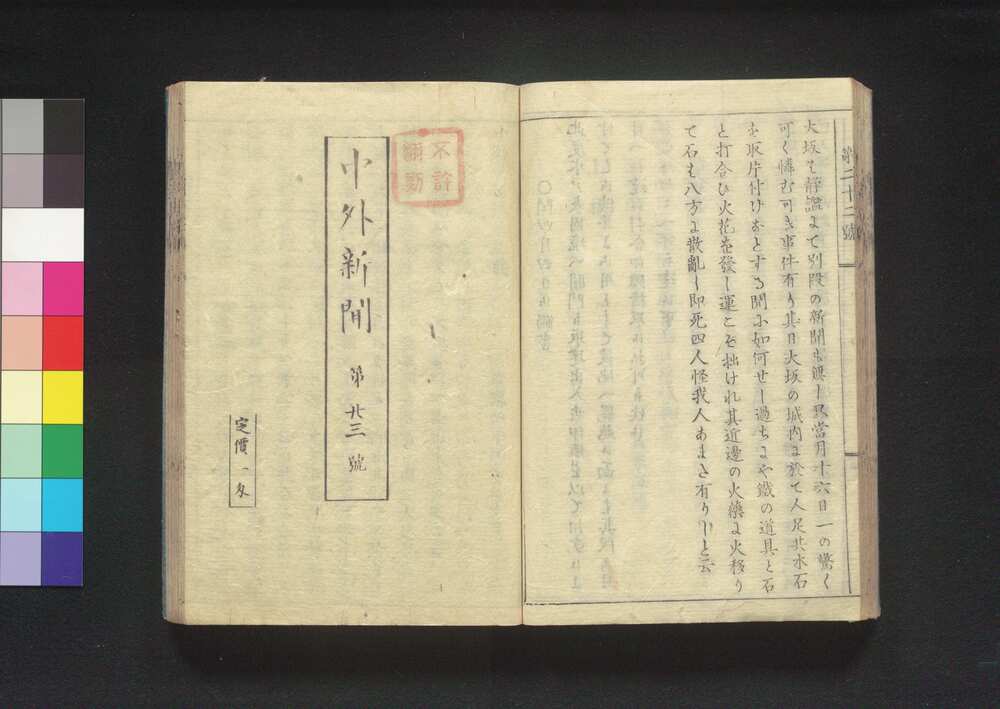 第二十二號
大坂も静謐よて別段の新聞も無し只當月十六日一の驚く
可く憐む可き事件有り其日大坂の城内に於て人足共水石
を取片付けおとする間に如何せし過ちにや鐵の道具と石
と打合ひ火花を發し運こそ拙けれ其近邊の火藥に火移り
て石も八方に散亂し即死四人怪我人あまた有りしと云
不許
翻刻
中外新聞 第廿三號
定價一匁